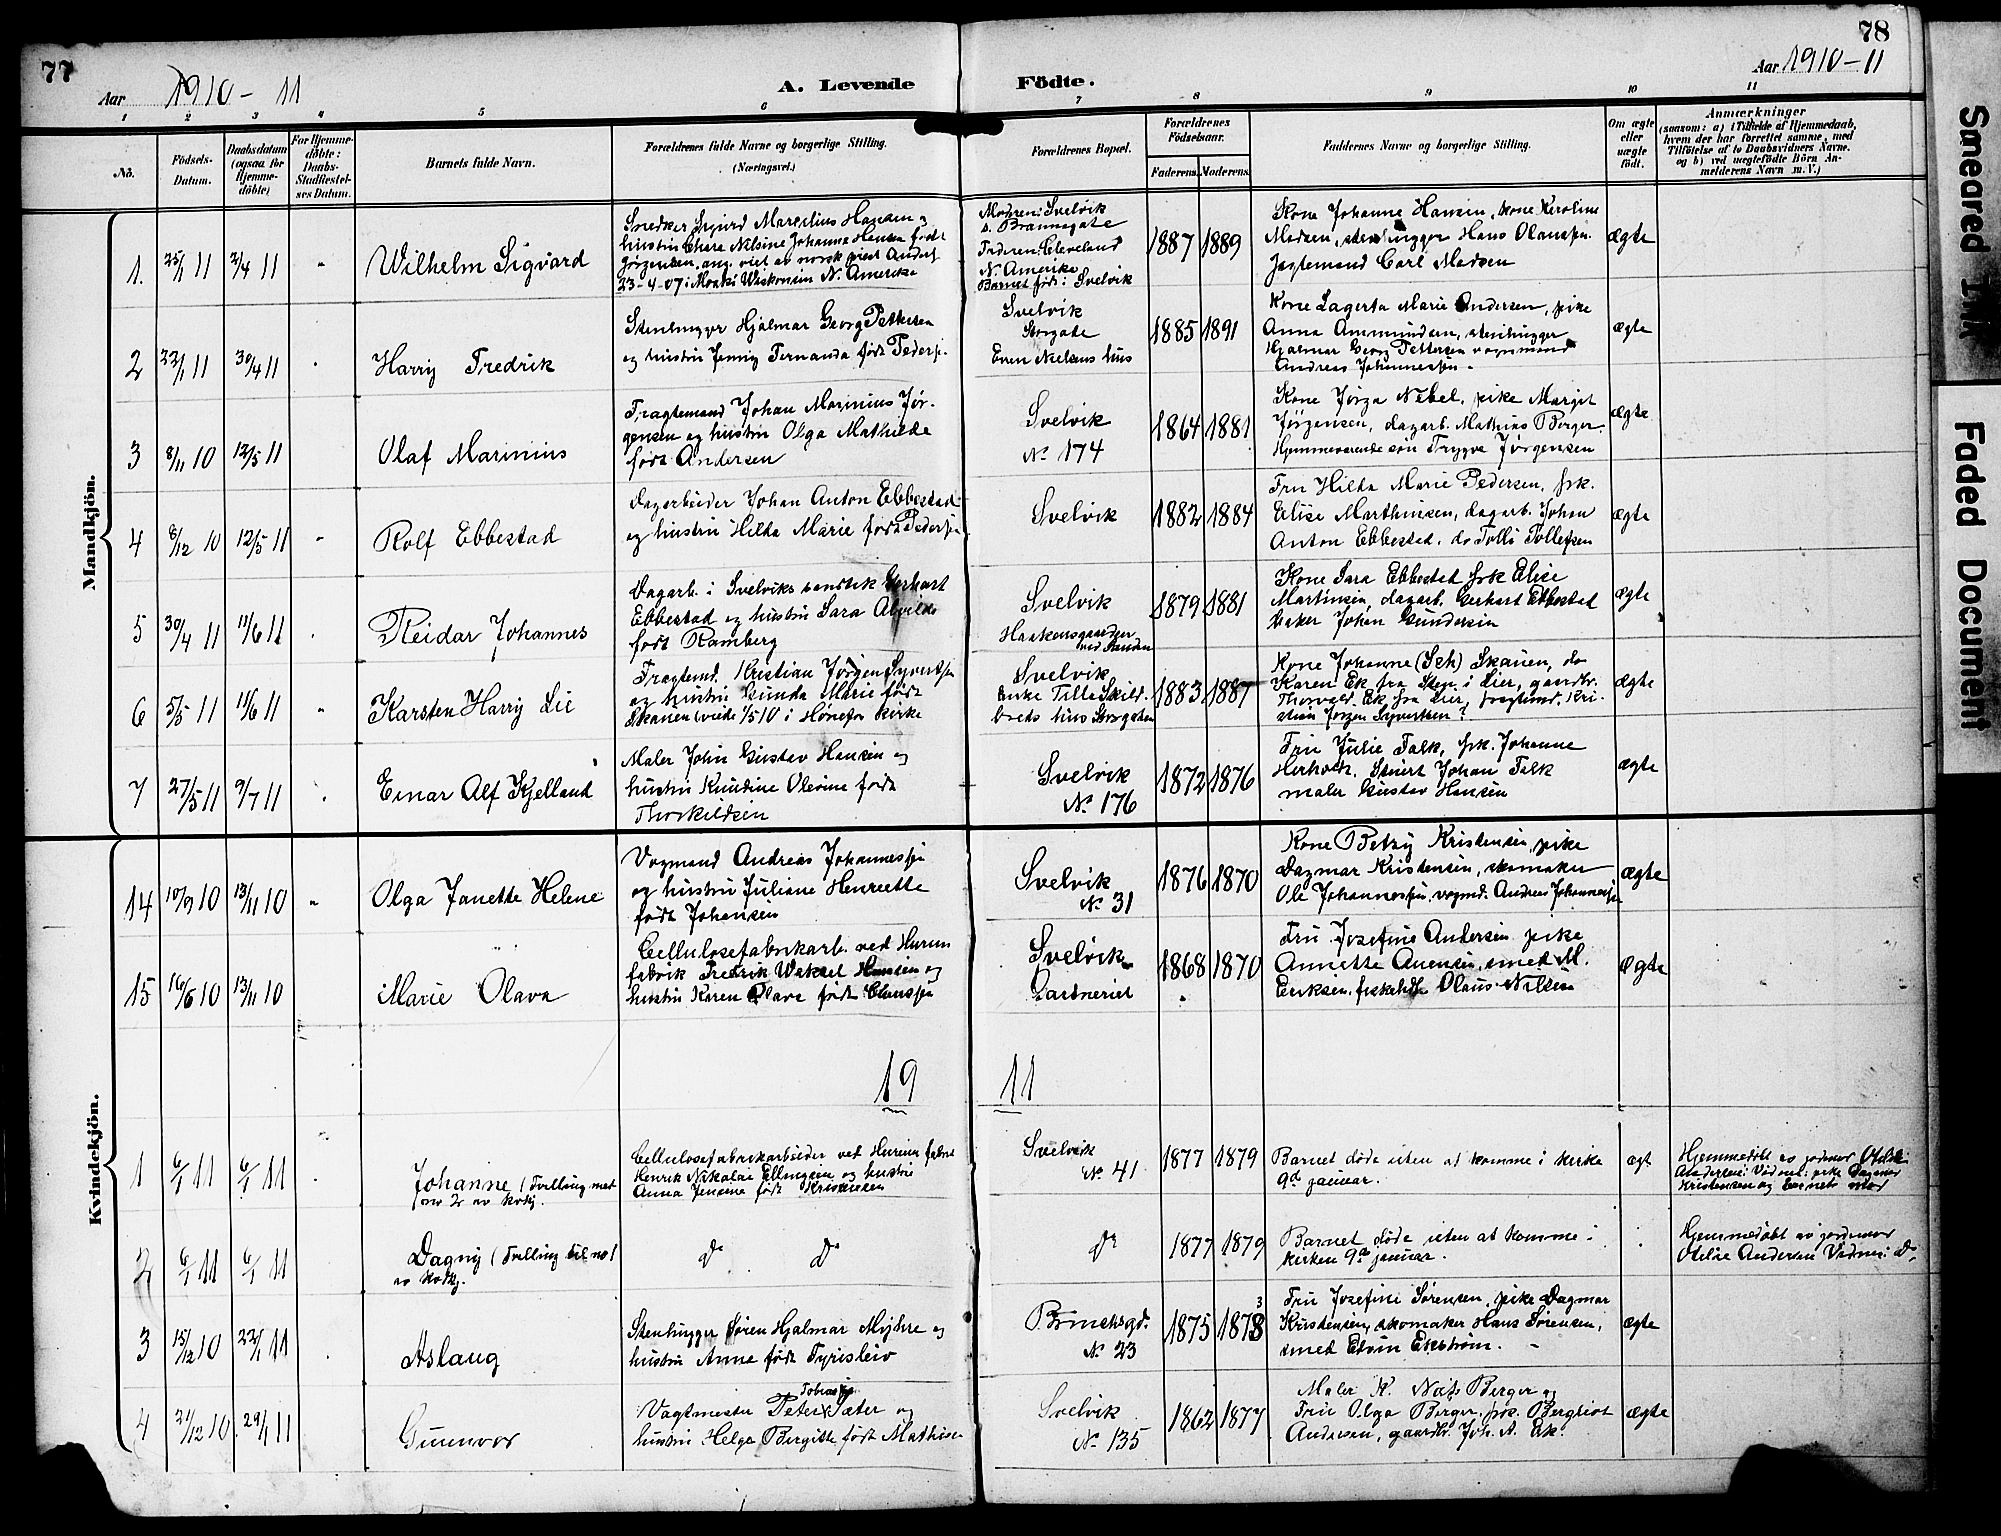 77
78
Aar 1910-11
A. Levende
Födte.
Aar 1910-11
1 2 3 4 5 6 7 8 9 10 11
No.
Födsels-
Datum.
Daabsdatum
(ogsaa for
Hjemme-
döbte)
For Hjemme-
döbte:
Daabs-
Stadfæstel-
ses Datum.
Barnets fulde Navn.
Forældrenes fulde Navne og borgerlige Stilling.
(Næringsvei.)
Forældrenes Bopæl.
Forældrenes
Födselsaar.
Faderens. Moderens.
Faddernes Navne og borgerlige Stilling.
Om ægte
eller
uægte
födt.
Anmærkninger
(saasom: a) i Tilfælde af Hjemmedaab,
hvem der har forrettet samme, med
Tilföielse af to Daabsvidners Navne,
og b) ved uægtefödte Börn An-
melderens Navn m. V.)
Mandkjön.
1. 25/1 11 2/4 11 " Wilhelm Sigvard
Snedker Sigurd Marselius Hansen og
hustru Chara Nilsine Johanna Hansen født
Jørgensen, ang. viet av norsk prest
23-4-07 i Wiskonsin N. Amerika
Moderen: Svelvik
Faderen: Cleveland
N. Amerika
Barnet født i Svelvik
1887 1889
Kone Johanne Hansen, kone Karoline
Madsen, stenhugger Hans Olaussen
Jagtemand Carl Madsen
ægte
2 22/1 11 30/4 11 Harry Fredrik
Stenhugger Hjalmar Georg Pettersen
og hustru Jenny Fernanda født Peders.
Svelvik
Storgate
Even Nielsens hus
1885 1891
Kone Lagerta Marie Andersen, pike
Anna Ammundsen, stenhugger
Hjalmar Georg Pettersen vognmand
Andreas Johannessen.
ægte
3 8/11 10 12/5 11 Olaf Marinius
Fragtemand Johan Marinius Jør-
gensen og hustru Olga Mathilde
født Andersen
Svelvik
No 174
1864 1881
Kone Jørga Nebel, pike Margit
Jørgensen, dagarb. Mathias Berger
Hjemmeværende søn Trygve Jørgensen
ægte
4 8/12 10 12/5 11 " Rolf Ebbestad
Dagarbeider Johan Anton Ebbestad
og hustru Hilda Marie født Pedersen
Svelvik
1882 1884
Fru Hilda Marie Pedersen, frk.
Elise Marthinsen, dagarb. Johan
Anton Ebbestad. do Tollef Tollefsen
ægte
5 30/4 11 11/6 11 Reidar Johannes
Dagarb. i Svelviks Gerhart
Ebbestad og hustru Sara Alvilde
født Ramberg
Svelvik
Haakonsgaarden
ved Sanden
1879 1881
Kone Sara Ebbestad frk Elise
Martinsen, dagarb. Gerhart Ebbestad
baker Johan Gundersen
ægte
6 5/5 11 11/6 11 " Karsten Harry Lie
Fragtemd. Kristian Jørgen Syvertsen
og hustru Gunda Marie født
Skauen (viede 1/5 10 i Hønefos kirke
Svelvik
Enke Tilla Skild-
breds hus Storgaten
1883 1887
Kone Johanne (Seh) Skauen, do
Karen Ek fra i Lier, gaardbr.
Thorvald Ek fra Lier, fragtemd. Kri-
stian Jørgen Syvertsen?
ægte
7 27/5 11 9/7 11 Einar Alf Kjelland
Maler John Gustav Hansen og
hustru Knudine Olevine født
Thorkildsen
Svelvik
No 176
1872 1876
Fru Julie Falk, frk. Johanne
Johan Falk
maler Gustav Hansen
ægte
Kvindekjön.
14 10/9 10 13/11 10 " Olga Janette Helene
Vogmand Andreas Johannessen
og hustru Juliane Henriette
født Johansen
Svelvik
No 31
1876 1870
Kone Betzy Kristensen, pike
Dagmar Kristensen, skomaker
Ole Johannessen, vogmd. Andreas Johannessen
ægte
15 16/6 10 13/11 10 Marie Olava
Cellulosefabrikarb. ved Hurum
fabrik Fredrik Waksel Hansen og
hustru Karen Olava født Clausen
Svelvik
Gartneriet
1868 1870
Fru Josefine Andersen pike
Annette Anensen, smed M.
Eriksen, fiskehdl Olaus Nilsen
ægte
19 11
1 6/1 11 6/1 11 Johanne (Tvilling med
no 2 av kvkj.
Cellulosefabrikarbeider ved Hurum fabrik
Henrik Nikolai Ellingsen og hustru
Anna Jensine født Kristensen
Svelvik
No 41
1877 1879
Barnet døde uten at komme i kirke
9de januar.
ægt
Hjemmedøbt av jordmor Otilie
Andersen: Vidner: pike Dagmar
Kristensen og barnets mor
2 6/1 11 6/1 11 Dagny (Tvilling til no 1
av kvkj.
do do
do
1877 1879
Barnet døde uten at komme i
kirken 9de januar.
Hjemmedøbt av jordmor
Otilie Andersen Vidner: do.
3 15/12 10 22/1 11 Aslaug
Stenhugger Søren Hjalmar Myhre og
hustru Anne født Tyrisleiv
Brinchsgd.
No 23
1875 1878
3
Fru Josefine Sørensen, pike Dagmar
Kristensen, skomaker Hans Sørensen,
smed Edvin Ekstrøm.
ægte
4 21/12 10 29/1 11 Gunnvor
Tobias
Vagtmester Peter Sæter og
hustru Helga Bergitte født Mathisen
Svelvik
No 135
1862 1877
Maler K. Berger og
Fru Olga Berger, frk. Bergliot
Andersen, gaardbr. Joh. A. Ek.
ægte
Smeared Ink
Faded Document